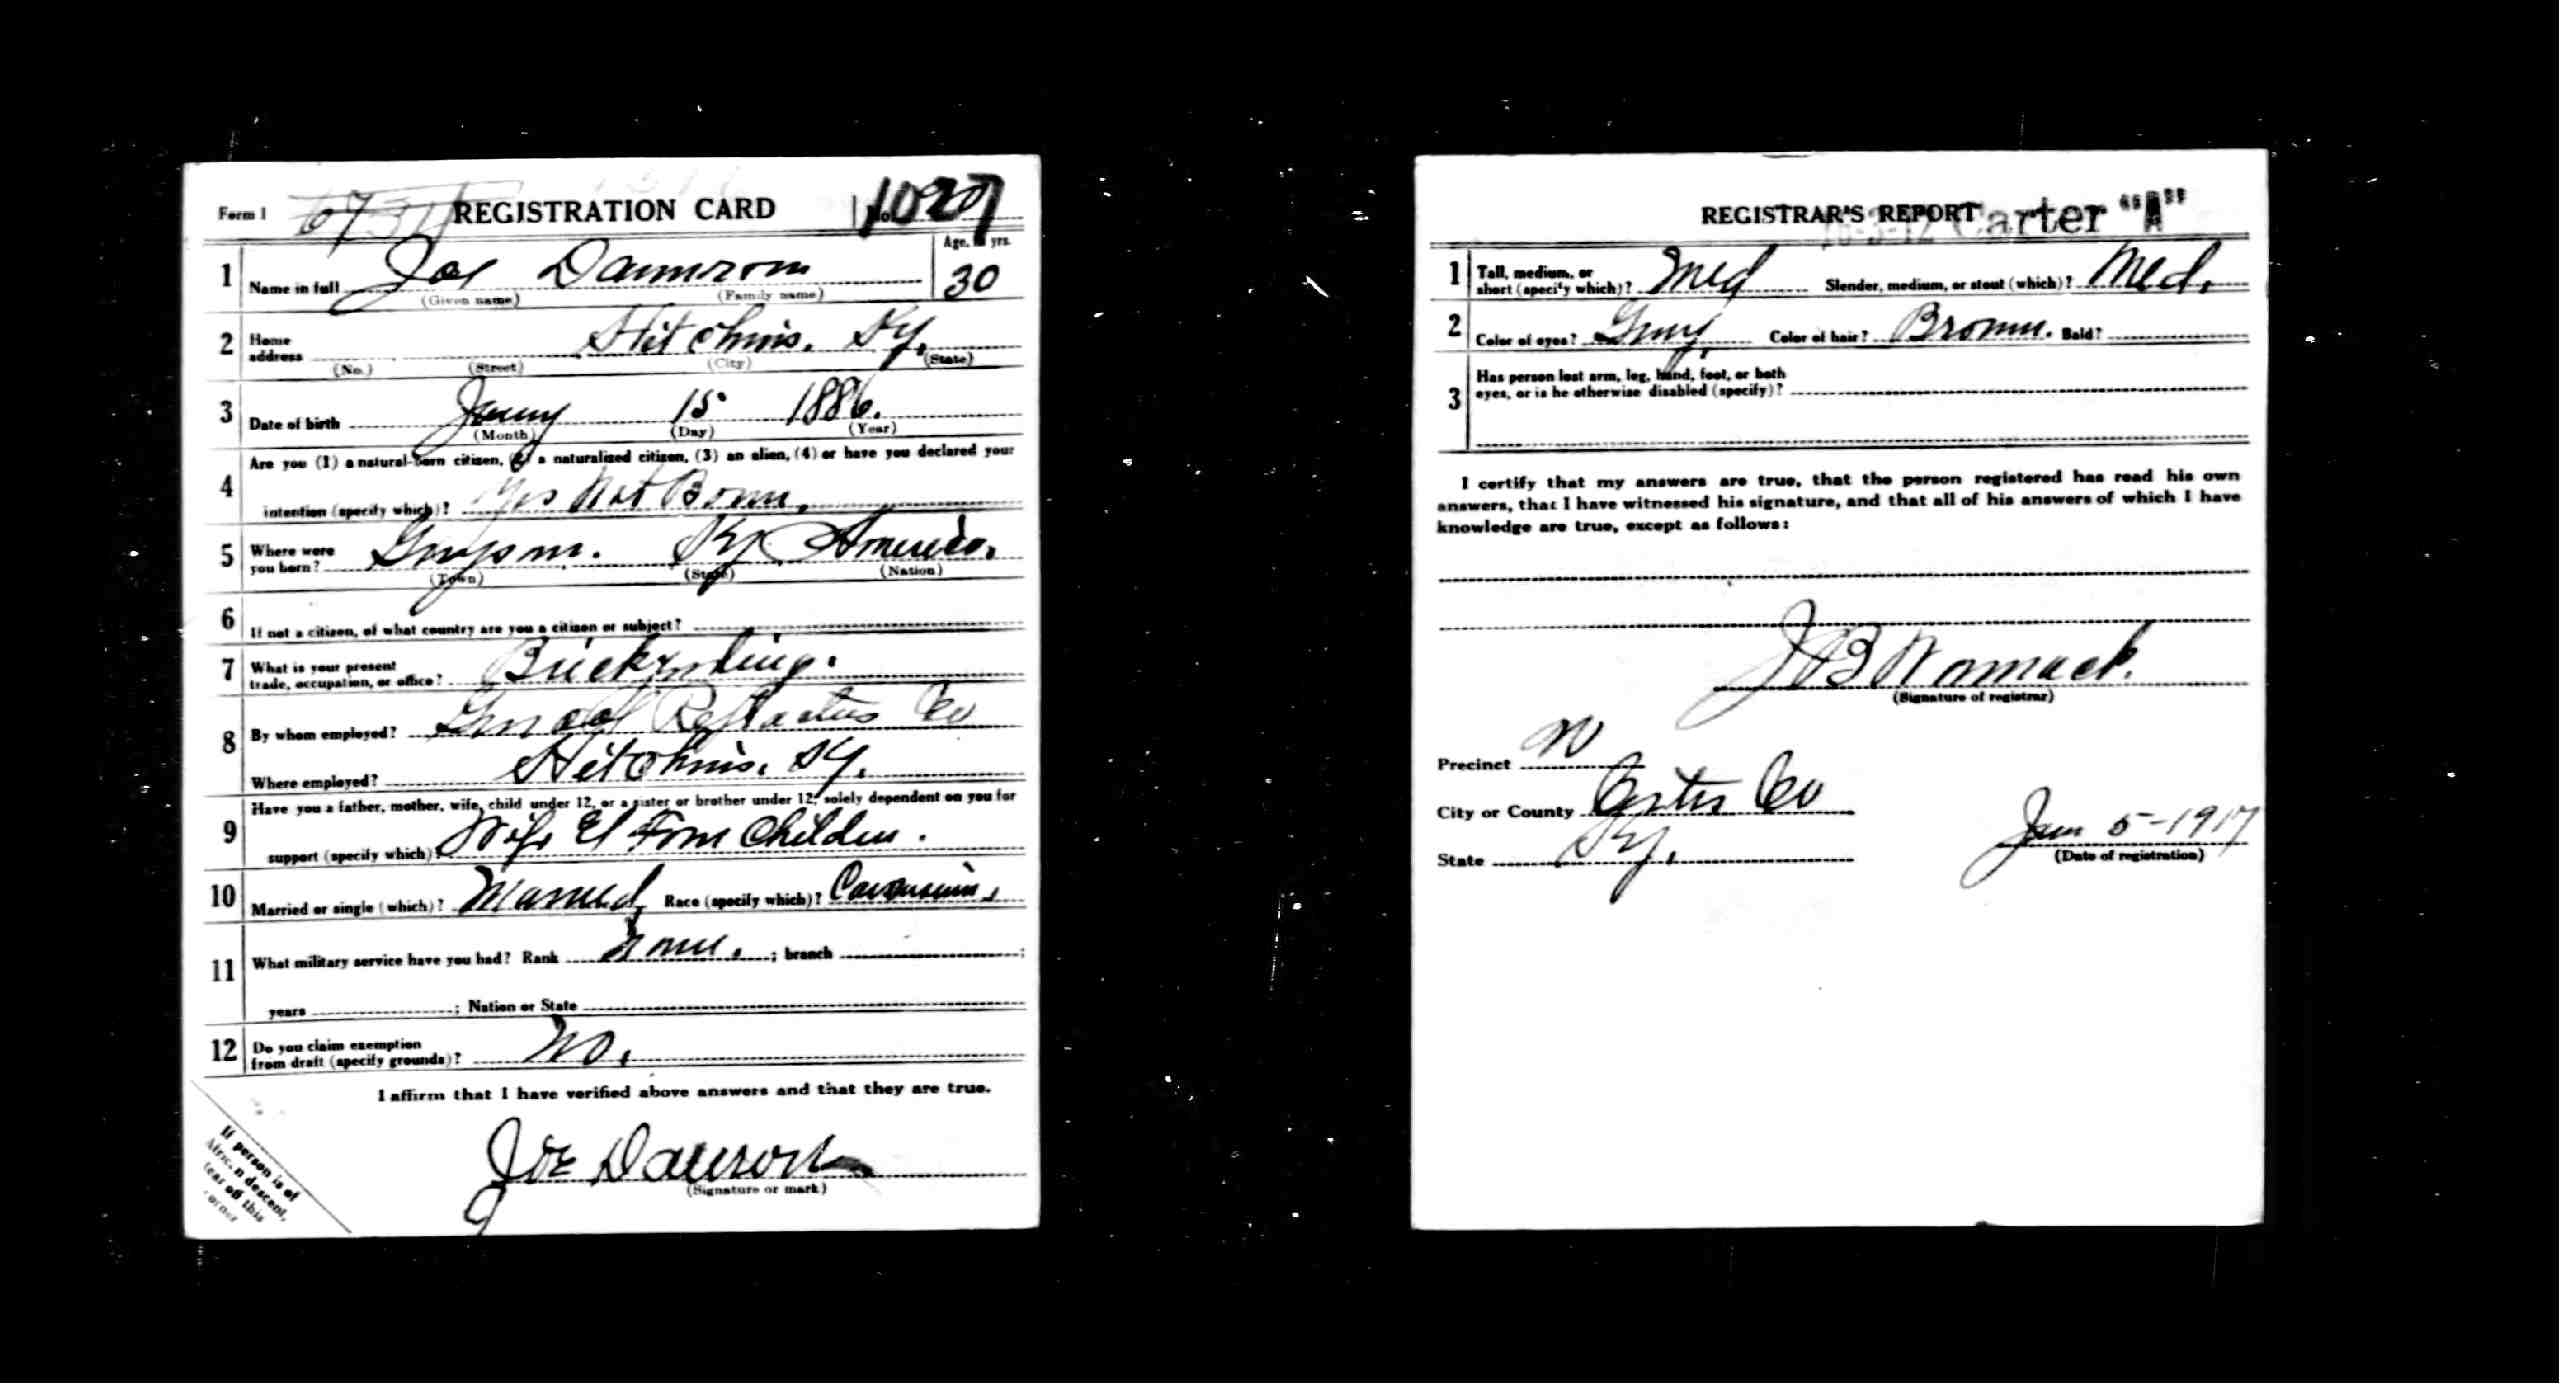 Form 1 67 REGISTRATION CARD No. 1027
1 Name in full Joe Damrom Age, yrs. 30
(Given name) (Family name)
2 Home address Hitchins. Ky.
(No.) (Street) (City) (State)
3 Date of birth Jany 15 1886.
(Month) (Day) (Year)
4 Are you (1) a natural-born citizen, (2) a naturalized citizen, (3) an alien, (4) or have you declared your
intention (specify which)? Yes Nat Born.
5 Where were you born? Grayson. Ky America.
(Town) (State) (Nation)
6 If not a citizen, of what country are you a citizen or subject?
7 What is your present
trade, occupation, or office?
8 By whom employed? Refractories Co
Where employed? Hitchins. Ky.
9 Have you a father, mother, wife, child under 12, or a sister or brother under 12, solely dependent on you for
support (specify which)? Wife & Four Children.
10 Married or single (which)? Married Race (specify which)? Caucasian.
11 What military service have you had? Rank None. ; branch ;
years ; Nation or State
12 Do you claim exemption
from draft (specify grounds)? No.
I affirm that I have verified above answers and that they are true.
Joe Damron
(Signature or mark)
If person is of
African descent,
tear off this
corner
REGISTRAR'S REPORT Carter "A"
1 Tall, medium, or
short (specify which)? Med Slender, medium, or stout (which)? Med.
2 Color of eyes? Gray Color of hair? Brown. Bald?
3 Has person lost arm, leg, hand, foot, or both
eyes, or is he otherwise disabled (specify)?
I certify that my answers are true, that the person registered has read his own
answers, that I have witnessed his signature, and that all of his answers of which I have
knowledge are true, except as follows:
J B Womack.
(Signature of registrar)
Precinct
City or County Carter Co
State Ky. Jun 5-1917
(Date of registration)